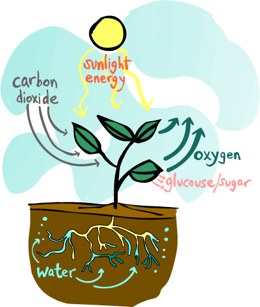 sunlight
energy
carbon
dioxide
oxygen
glucouse/sugar
water